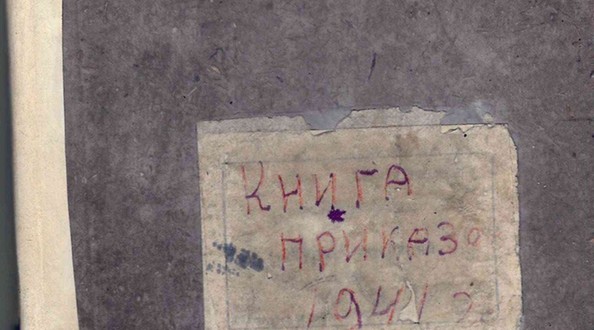 КНИГА
ПРИКАЗО
1941г